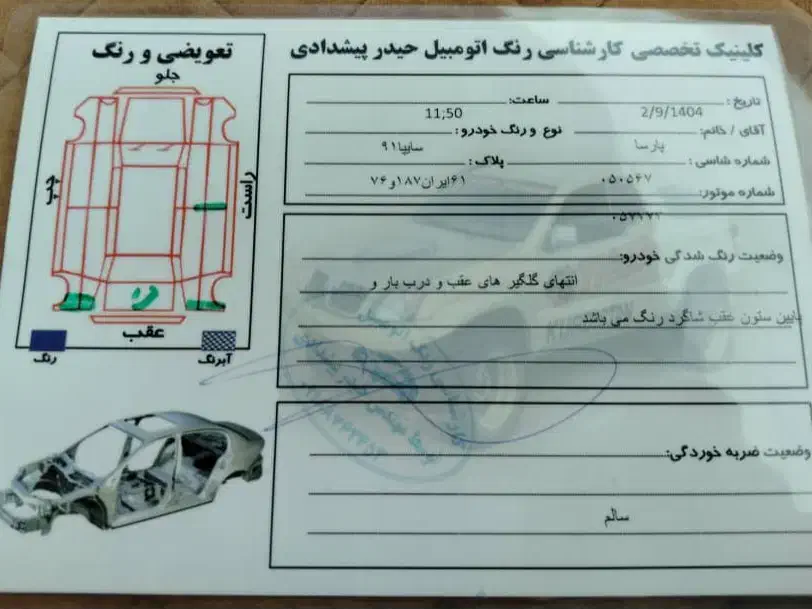 کلینیک تخصصی کارشناسی رنگ اتومبیل حیدر پیشدادی
تاریخ: 2/9/1404 ساعت: 11;50
آقای / خانم: پارسا نوع و رنگ خودرو: سایپا۹۱
شماره شاسی: ۰۵۰۵۶۷ پلاک: ۶۱ایران۱۸۷و۷۶
شماره موتور:
وضعیت رنگ شدگی خودرو:
انتهای گلگیر های عقب و درب بار و
پایین ستون عقب شاگرد رنگ می باشد
وضعیت ضربه خوردگی:
سالم
تعویضی و رنگ
جلو
چپ
راست
عقب
رنگ
آبرنگ